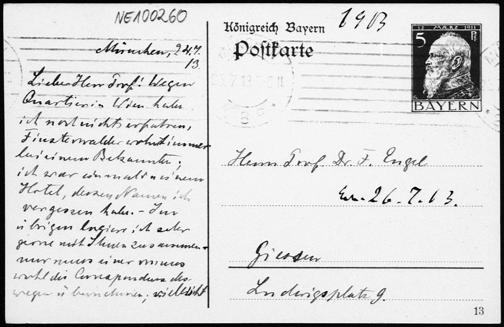 NE100260
1913
Königreich Bayern
Postkarte
12. MÄRZ 1911
5 Pf
BAYERN
München, 24.7.
13
Lieber Herr Prof! Wegen
Quartier in Wien habe
ich noch nichts erfahren,
Finsterwalder wohnt immer
bei einem Bekannten;
ich war einmal in einem
Hotel, dessen Namen ich
vergessen habe. - Im
übrigen logiere ich sehr
gerne mit Ihnen zusammen -
nur muss einer von uns
wohl die Correspondenz des-
wegen übernehmen; vielleicht
Herrn Prof. Dr. F. Engel
26.7.13.
Giessen
Ludwigsplatz 9.
13